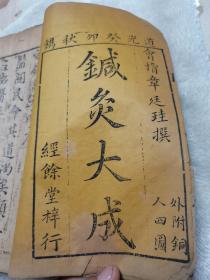 道光癸卯秋鐫
會稽章廷珪撰
外附銅
人四圖
鍼灸大成
經餘堂梓行